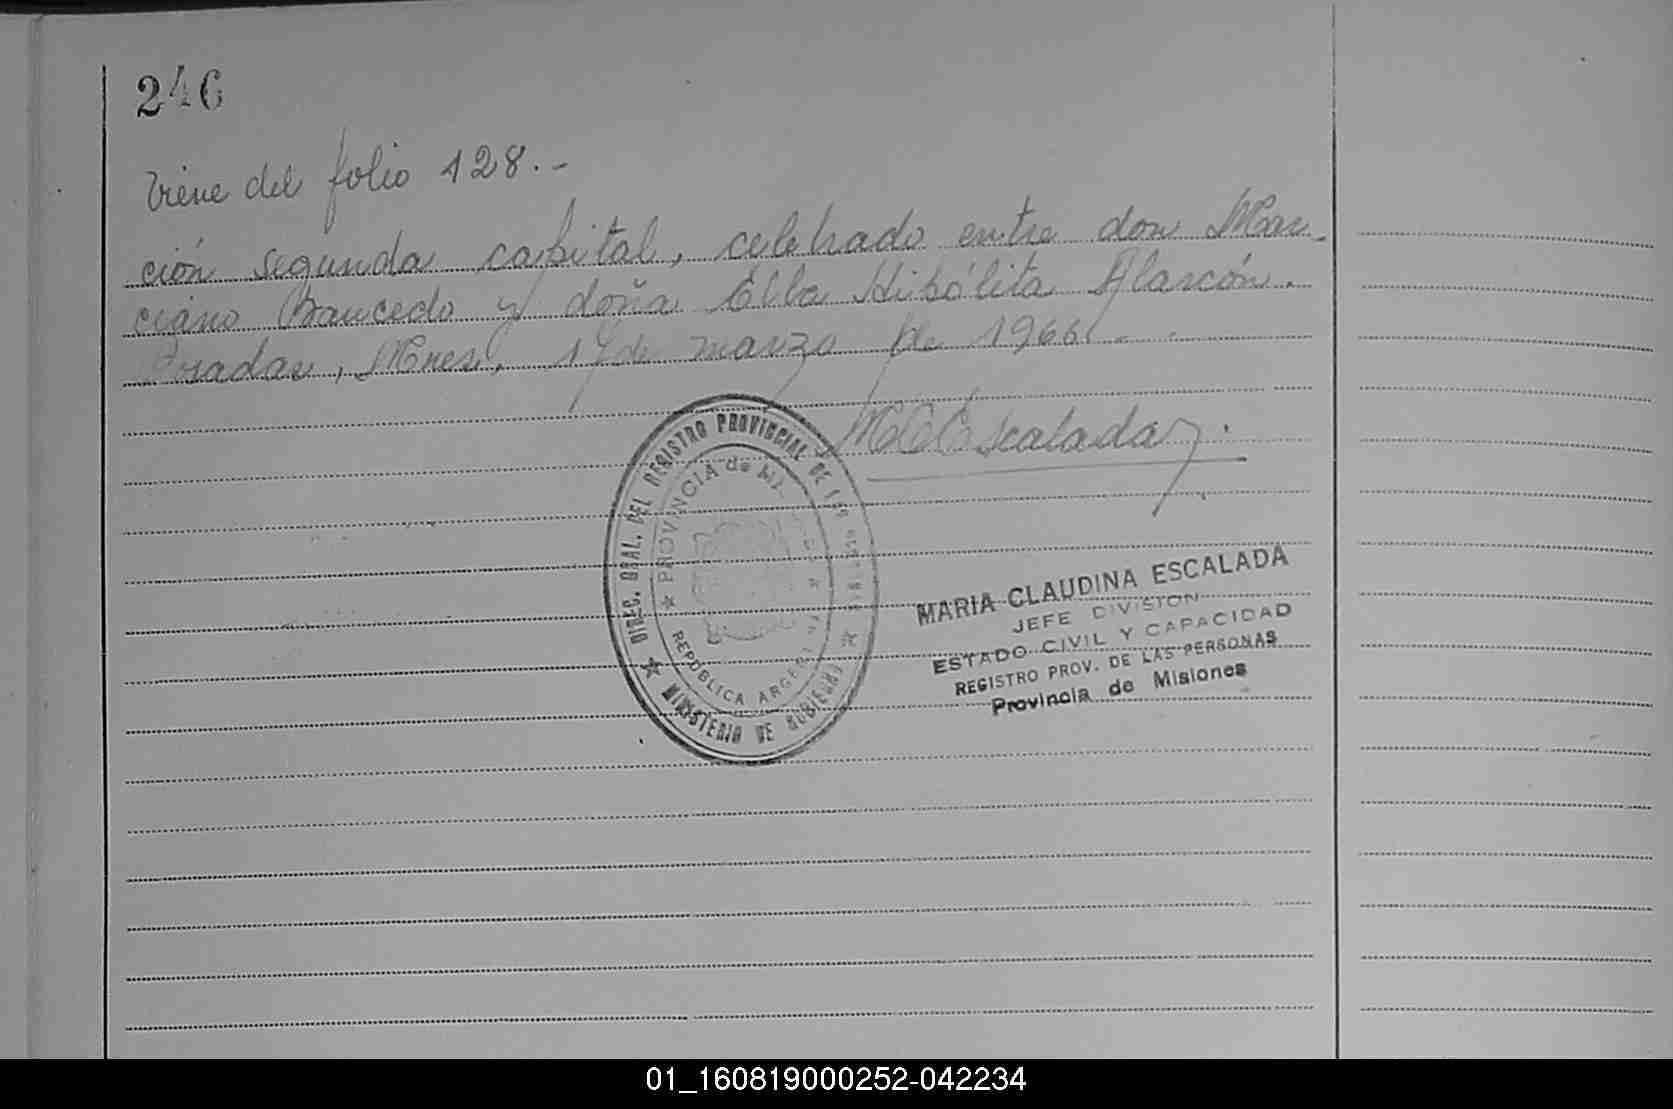 246
Viene del folio 128.-
ción segunda capital, celebrado entre don Mar-
ciano Baucedo y doña Elba Hipólita Alarcón.
Posadas, Mnes, 17 de marzo de 1966.
MCEscalada
DIREC. GRAL. DEL REGISTRO PROVINCIAL DE LAS
PROVINCIA de MI
REPÚBLICA ARGENTINA
MINISTERIO DE GOBIERNO
MARIA CLAUDINA ESCALADA
JEFE DIVISION
ESTADO CIVIL Y CAPACIDAD
REGISTRO PROV. DE LAS PERSONAS
Provincia de Misiones
01_160819000252-042234